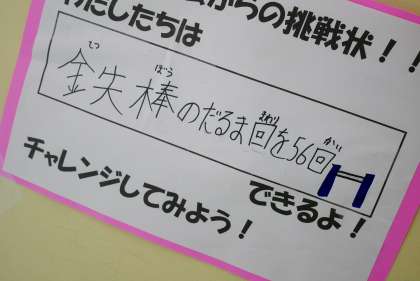 からの挑戦状！！
わたしたちは
金失棒のだるま回を56回
てつ ぼう まわり かい
できるよ！
チャレンジしてみよう！